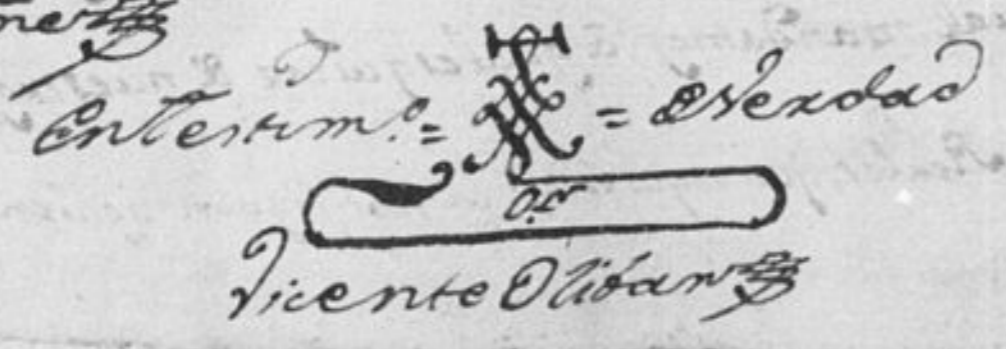 En testim.º = = de Verdad
Vicente Oliban